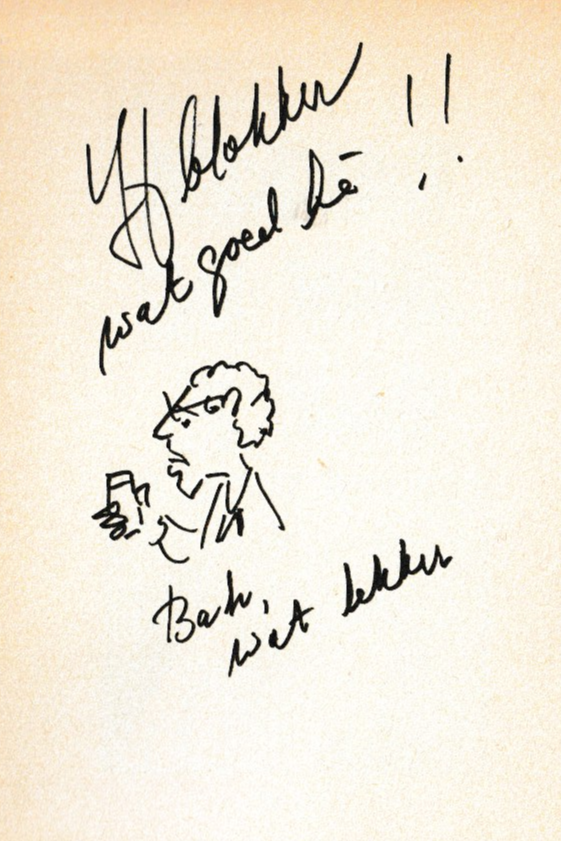 YH blokker !!
wat goed hè
Bah,
wat lekker